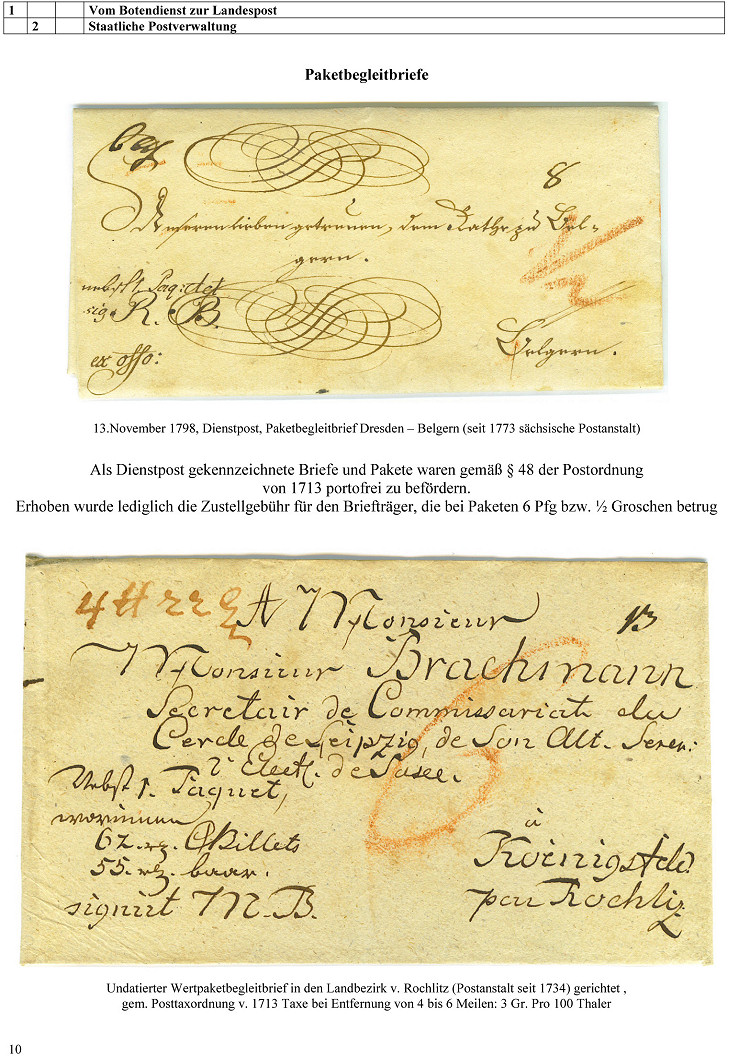 1 Vom Botendienst zur Landespost
2 Staatliche Postverwaltung
Paketbegleitbriefe
8
Unseren lieben getreuen, dem Rathe zu Bel-
gern.
nebst 1. Paq: det
sig. R. B.
ex offo:
Belgern.
13.November 1798, Dienstpost, Paketbegleitbrief Dresden – Belgern (seit 1773 sächsische Postanstalt)
Als Dienstpost gekennzeichnete Briefe und Pakete waren gemäß § 48 der Postordnung
von 1713 portofrei zu befördern.
Erhoben wurde lediglich die Zustellgebühr für den Briefträger, die bei Paketen 6 Pfg bzw. ½ Groschen betrug
A Monsieur
13
Monsieur Brachmann
Secretair de Commissariat du
Cercle de Leipzig, de Son Alt. Seren:
Elect. de Saxe.
Nebst 1. Paquet,
worinnen
62. rh. CBillets
55. rh. baar.
signirt M. B.
à
Koenigsfeld
par Rochliz
Undatierter Wertpaketbegleitbrief in den Landbezirk v. Rochlitz (Postanstalt seit 1734) gerichtet ,
gem. Posttaxordnung v. 1713 Taxe bei Entfernung von 4 bis 6 Meilen: 3 Gr. Pro 100 Thaler
10